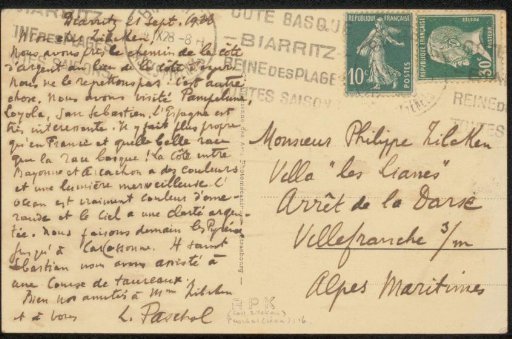 Biarritz 21 Sept. 1928
Mr Zilcken
Nous avons pris le chemin de la côte
d'argent au lieu de la côte d'azur
Nous ne le regrettons pas. C'est autre
chose. Nous avons visité Pampelune,
Loyola, San Sebastien. L'Espagne est
très intéressante. Il y fait plus propre
qu'en France et quelle belle race
que la race basque! La Côte entre
Bayonne et Arcachon a des couleurs
et une lumière merveilleuse. L'
océan est vraiment couleur d'éme-
raude et le ciel a une clarté argen-
tée. Nous faisons demain les Pyrénées
jusqu'à Carcassonne. A Saint
Sébastien nous avons assisté à
une Course de taureaux
Bien nos amitiés à Mme Zilcken
et à vous
L. Paschal
BIARRITZ
COTE BASQU
BIARRITZ
REINE DES PLAGE
TOUTES SAISON
REINE DE
TOUTES
RÉPUBLIQUE FRANÇAISE
10c
POSTES
30c
Monsieur Philippe Zilcken
Villa "les Lianes"
Arrêt de la Darse
Villefranche s/m
Alpes Maritimes
RPK